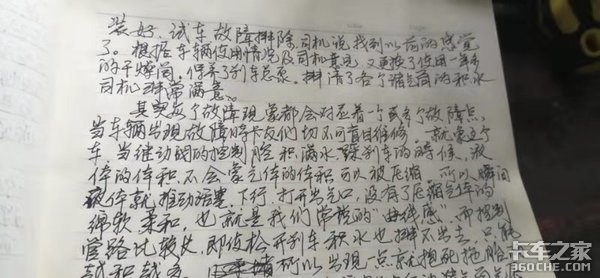 装好、试车故障排除,司机说找到以前的感觉
了。根据车辆使用情况及司机意见,又更换了使用一年多
的干燥筒,保养了刹车总泵。排清了各个储气筒内积水
司机非常满意。
其实每个故障现象都会对应着一个或多个故障点,
当车辆出现故障时卡友们切不可盲目维修。就象这个
车,当继动阀的控制腔积满水,踩刹车的时候,液
体的体积不会象气体的体积可以被压缩。所以瞬间
液体就推动活塞下行,打开出气口,没有了压缩气体的
绵软柔和,也就是我们常说的"由伴感"而控制
管路比较长,即使松开刹车积水也排不出去,只能
越积越多。所以出现一点就抱死拖胎
卡车之家
360che.com